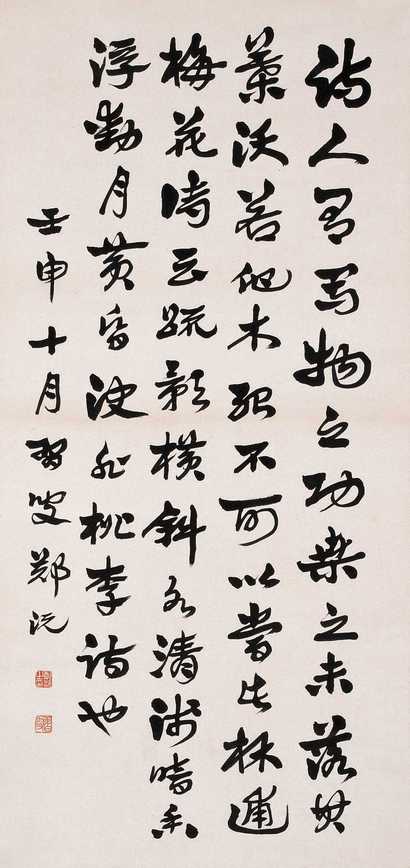 诗人有写物之功桑之未落其
葉沃若他木殆不可以當此林逋
梅花诗云疏影横斜水清浅暗香
浮動月黄昏决非桃李诗也
壬申十月習叟鄭沅